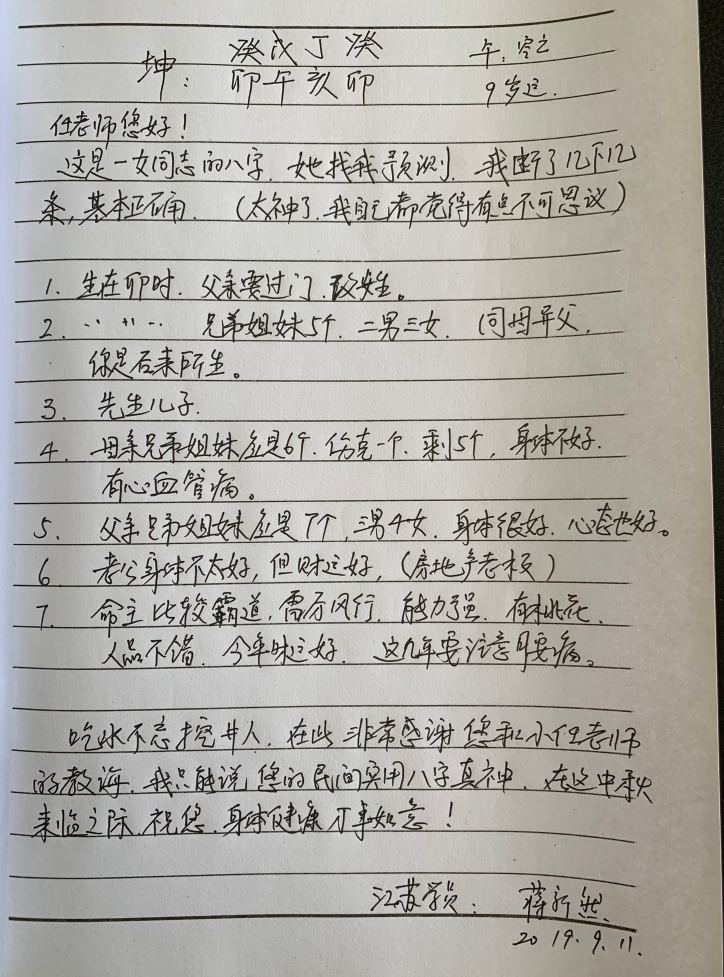 癸戊丁癸 午:空亡
坤: 卯午亥卯 9岁运.
任老师您好!
这是一女同志的八字. 她找我予测, 我断了几下几
条,基本正确. (太神了.我自己都觉得有点不可思议)
1. 生在卯时. 父亲要过门.改姓。
2. ‥ 〃 ‥ 兄弟姐妹5个. 二男三女. 同母异父.
你是后来所生。
3. 先生儿子.
4. 母亲兄弟姐妹应是6个.伤克一个.剩5个, 身体不好.
有心血管病。
5. 父亲兄弟姐妹应是7个,三男4女. 身体很好. 心态也好。
6 老公身体不太好, 但财运好, (房地产老板)
7. 命主比较霸道, 雷厉风行. 能力强. 有桃花.
人品不错. 今年财运好. 这几年要注意腰病。
吃水不忘挖井人. 在此非常感谢您和小任老师
的教诲. 我只能说您的民间实用八字真神. 在这中秋
来临之际.祝您.身体健康 万事如意!
江苏学员: 蒋新然.
2019.9.11.